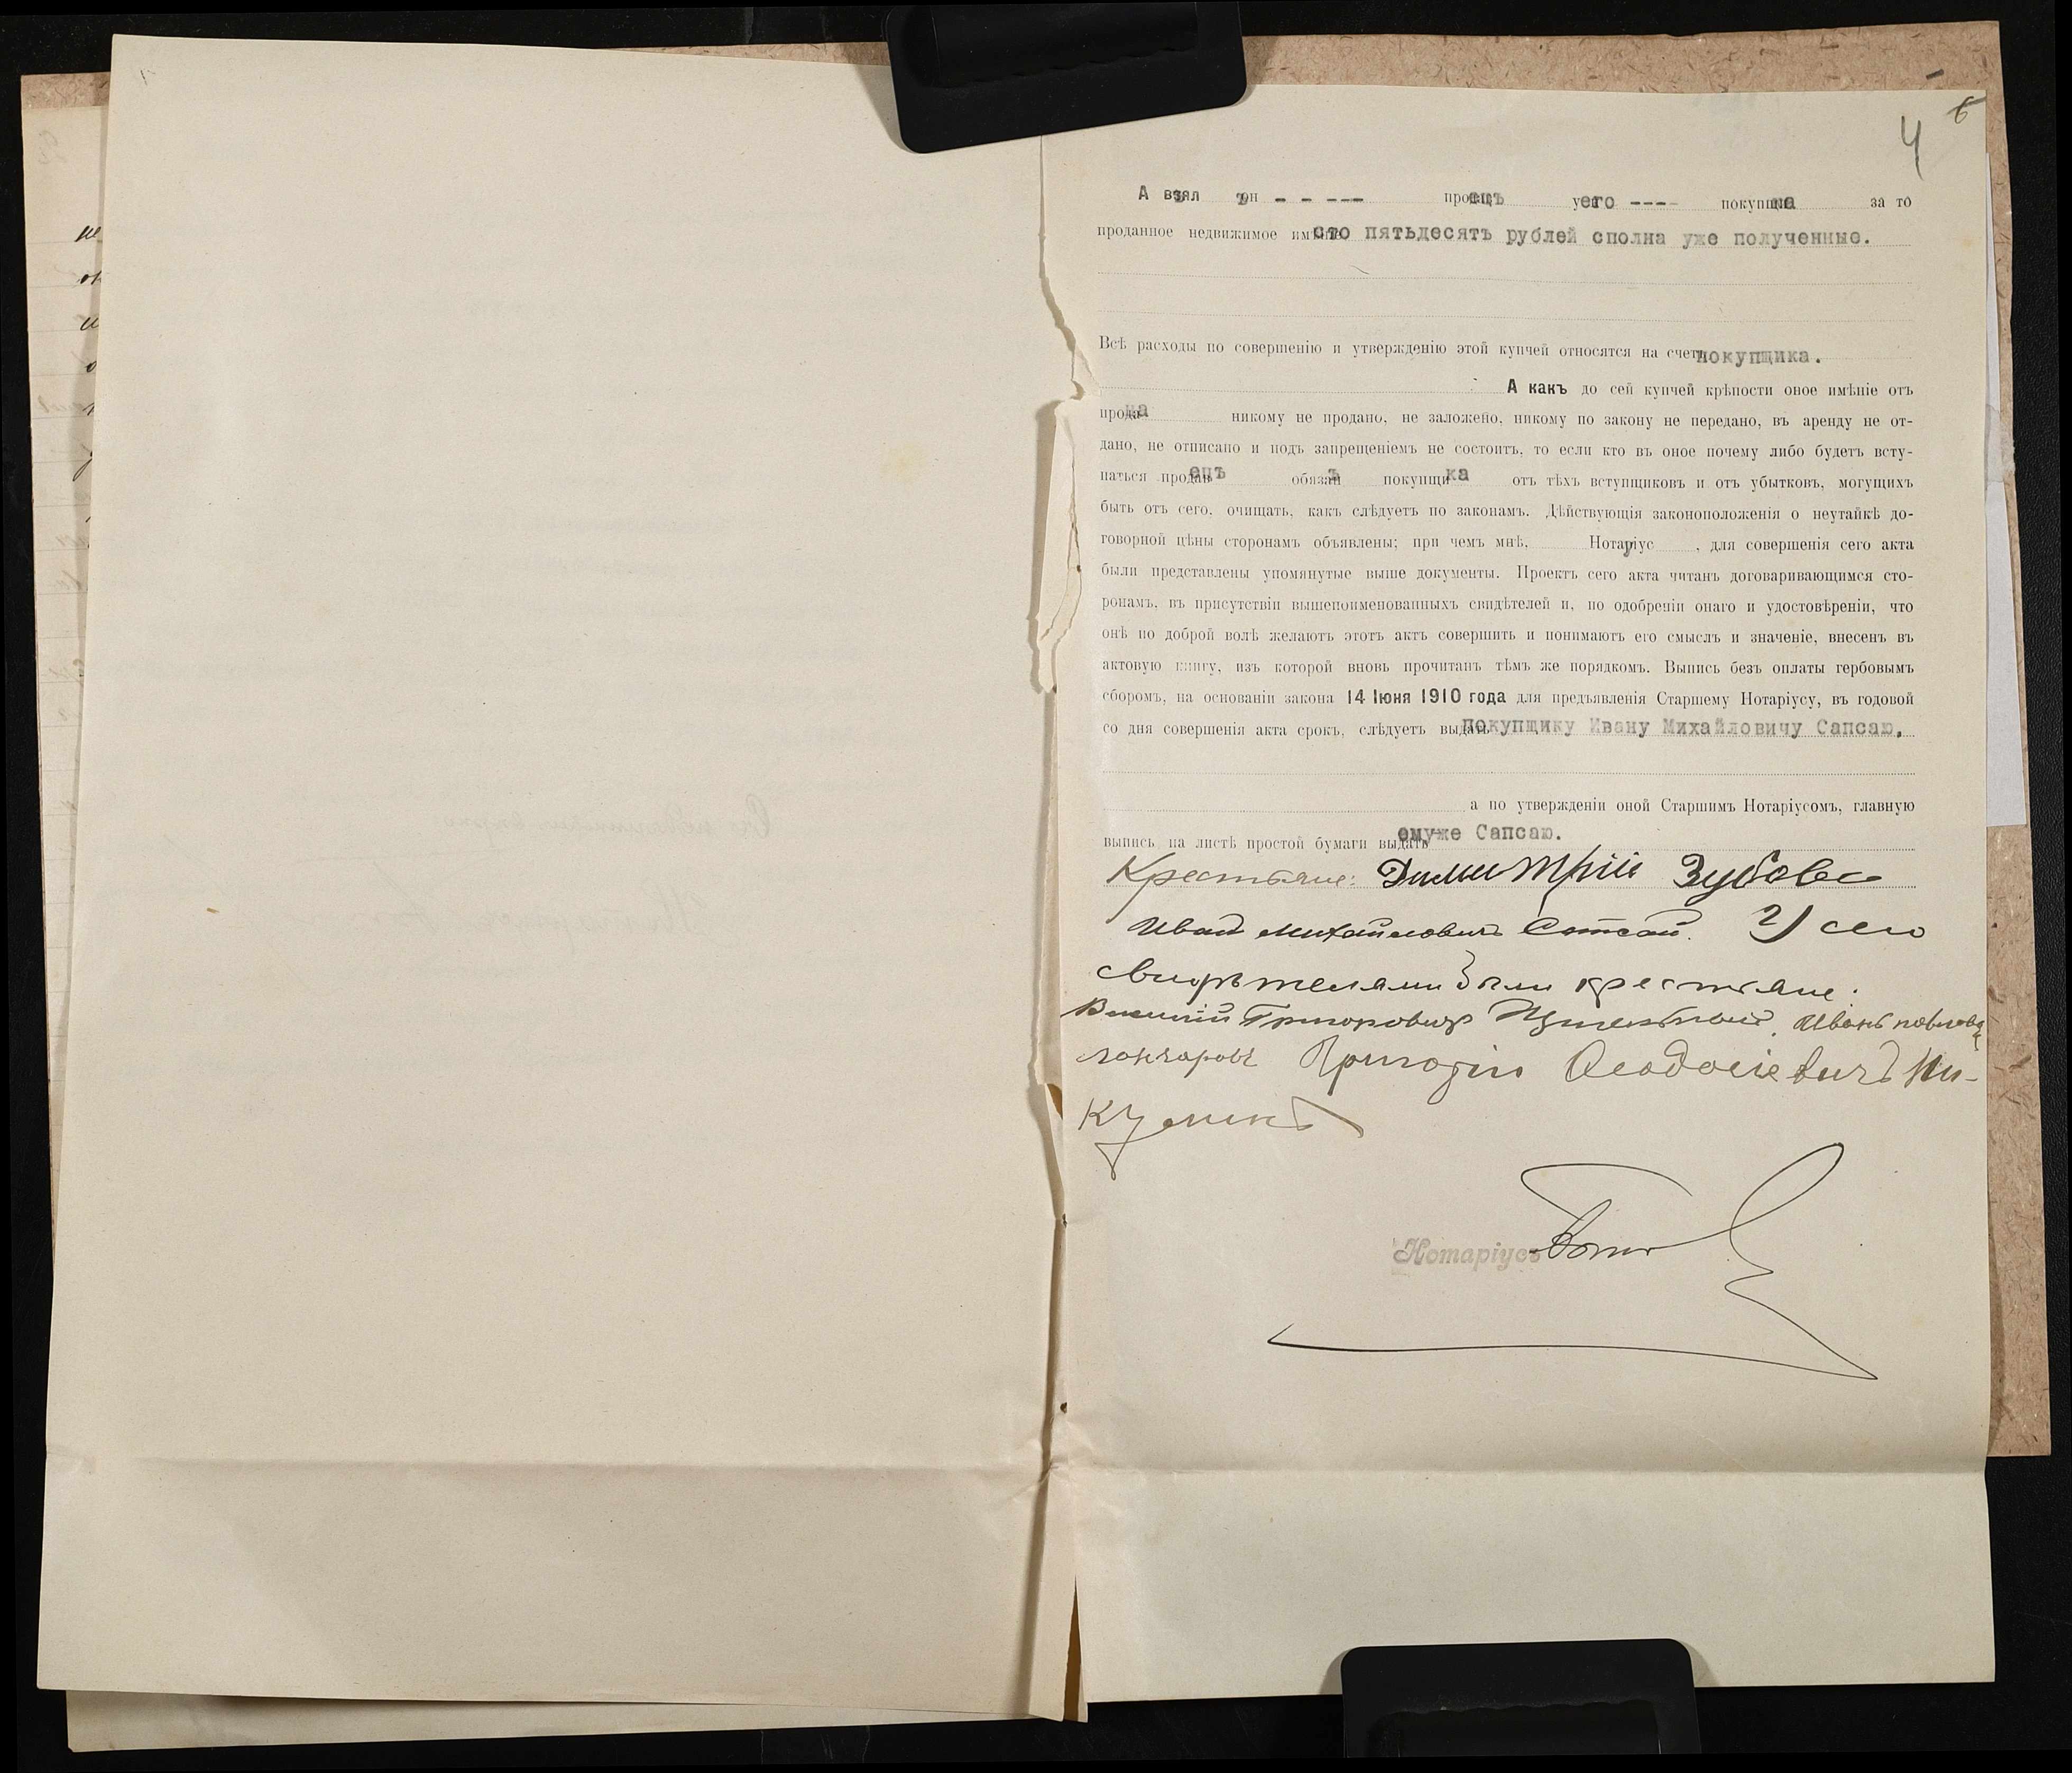 6
4
А взялъ онъ - - --- продавецъ у его ---- покупщика за то
проданное недвижимое имѣніе сто пятьдесятъ рублей сполна уже полученные.
Всѣ расходы по совершенію и утвержденію этой купчей относятся на счетъ покупщика.
А какъ до сей купчей крѣпости оное имѣніе отъ
продавца никому не продано, не заложено, никому по закону не передано, въ аренду не от-
дано, не отписано и подъ запрещеніемъ не состоитъ, то если кто въ оное почему либо будетъ всту-
паться продавецъ обязанъ покупщика отъ тѣхъ вступщиковъ и отъ убытковъ, могущихъ
быть отъ сего, очищать, какъ слѣдуетъ по законамъ. Дѣйствующія законоположенія о неутайкѣ до-
говорной цѣны сторонамъ объявлены; при чемъ мнѣ, Нотаріусу, для совершенія сего акта
были представлены упомянутые выше документы. Проектъ сего акта читанъ договаривающимся сто-
ронамъ, въ присутствіи вышепоименованныхъ свидѣтелей и, по одобреніи онаго и удостовѣреніи, что
онѣ по доброй волѣ желаютъ этотъ актъ совершить и понимаютъ его смыслъ и значеніе, внесенъ въ
актовую книгу, изъ которой вновь прочитанъ тѣмъ же порядкомъ. Выпись безъ оплаты гербовымъ
сборомъ, на основаніи закона 14 Іюня 1910 года для предъявленія Старшему Нотаріусу, въ годовой
со дня совершенія акта срокъ, слѣдуетъ выдать покупщику Ивану Михайловичу Сапсаю,
а по утвержденіи оной Старшимъ Нотаріусомъ, главную
выпись на листѣ простой бумаги выдать емуже Сапсаю.
Крестьяне: Димитрій Зубовъ
Иван Михайловичъ Сапсай.
свидѣтелями были крестьяне:
Григоровичъ Иванъ
гончаровъ Григорій Феодосіевичъ Ни-
куликъ
Нотаріусъ